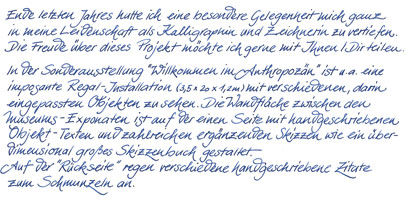 Ende letzten Jahres hatte ich eine besondere Gelegenheit mich ganz
in meine Leidenschaft als Kalligraphin und Zeichnerin zu vertiefen.
Die Freude über dieses Projekt möchte ich gerne mit Ihnen | Dir teilen.
In der Sonderausstellung "Willkommen im Anthropozän" ist u.a. eine
imposante Regal-Installation (3,5 x 20 x 1,2 m) mit verschiedenen, darin
eingepassten Objekten zu sehen. Die Wandfläche zwischen den
Museums-Exponaten ist auf der einen Seite mit handgeschriebenen
Objekt-Texten und zahlreichen ergänzenden Skizzen wie ein über-
dimensional großes Skizzenbuch gestaltet.
Auf der "Rückseite" regen verschiedene handgeschriebene Zitate
zum Schmunzeln an.